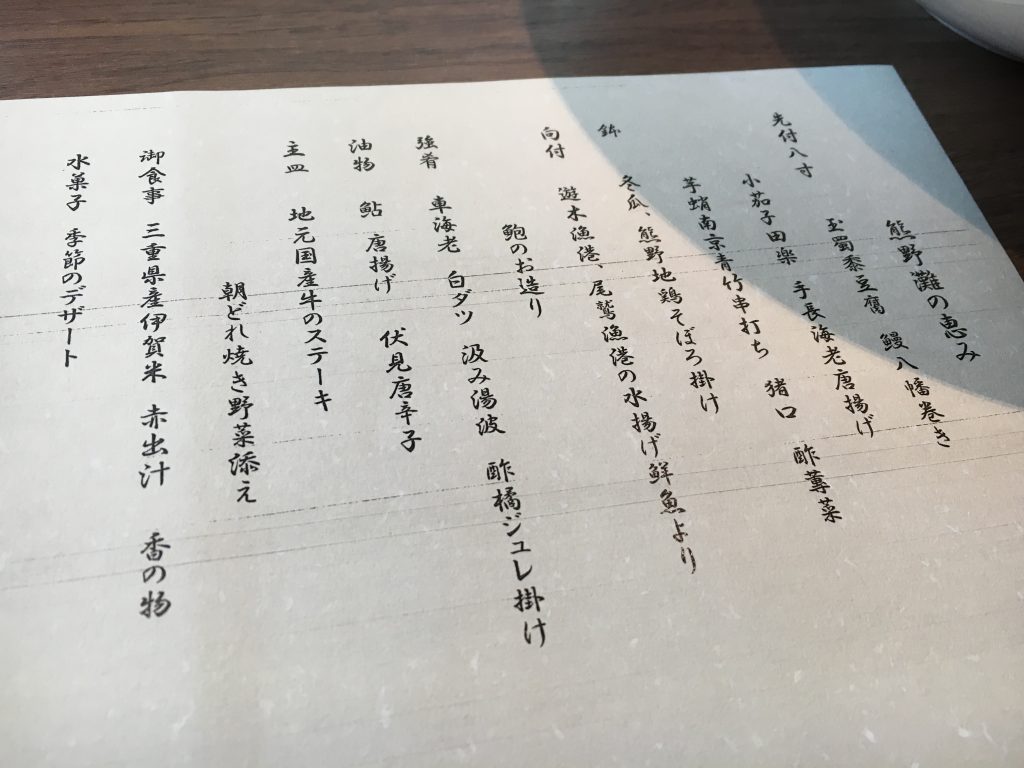 熊野灘の恵み
先付八寸 玉蜀黍豆腐 鰻八幡巻き
小茄子田楽 手長海老唐揚げ
芋蛸南京青竹串打ち 猪口 酢蓴菜
鉢 冬瓜、熊野地鶏そぼろ掛け
向付 遊木漁港、尾鷲漁港の水揚げ鮮魚より
鮑のお造り
強肴 車海老 白ダツ 汲み湯波 酢橘ジュレ掛け
油物 鮎 唐揚げ 伏見唐辛子
主皿 地元国産牛のステーキ
朝どれ焼き野菜添え
御食事 三重県産伊賀米 赤出汁 香の物
水菓子 季節のデザート